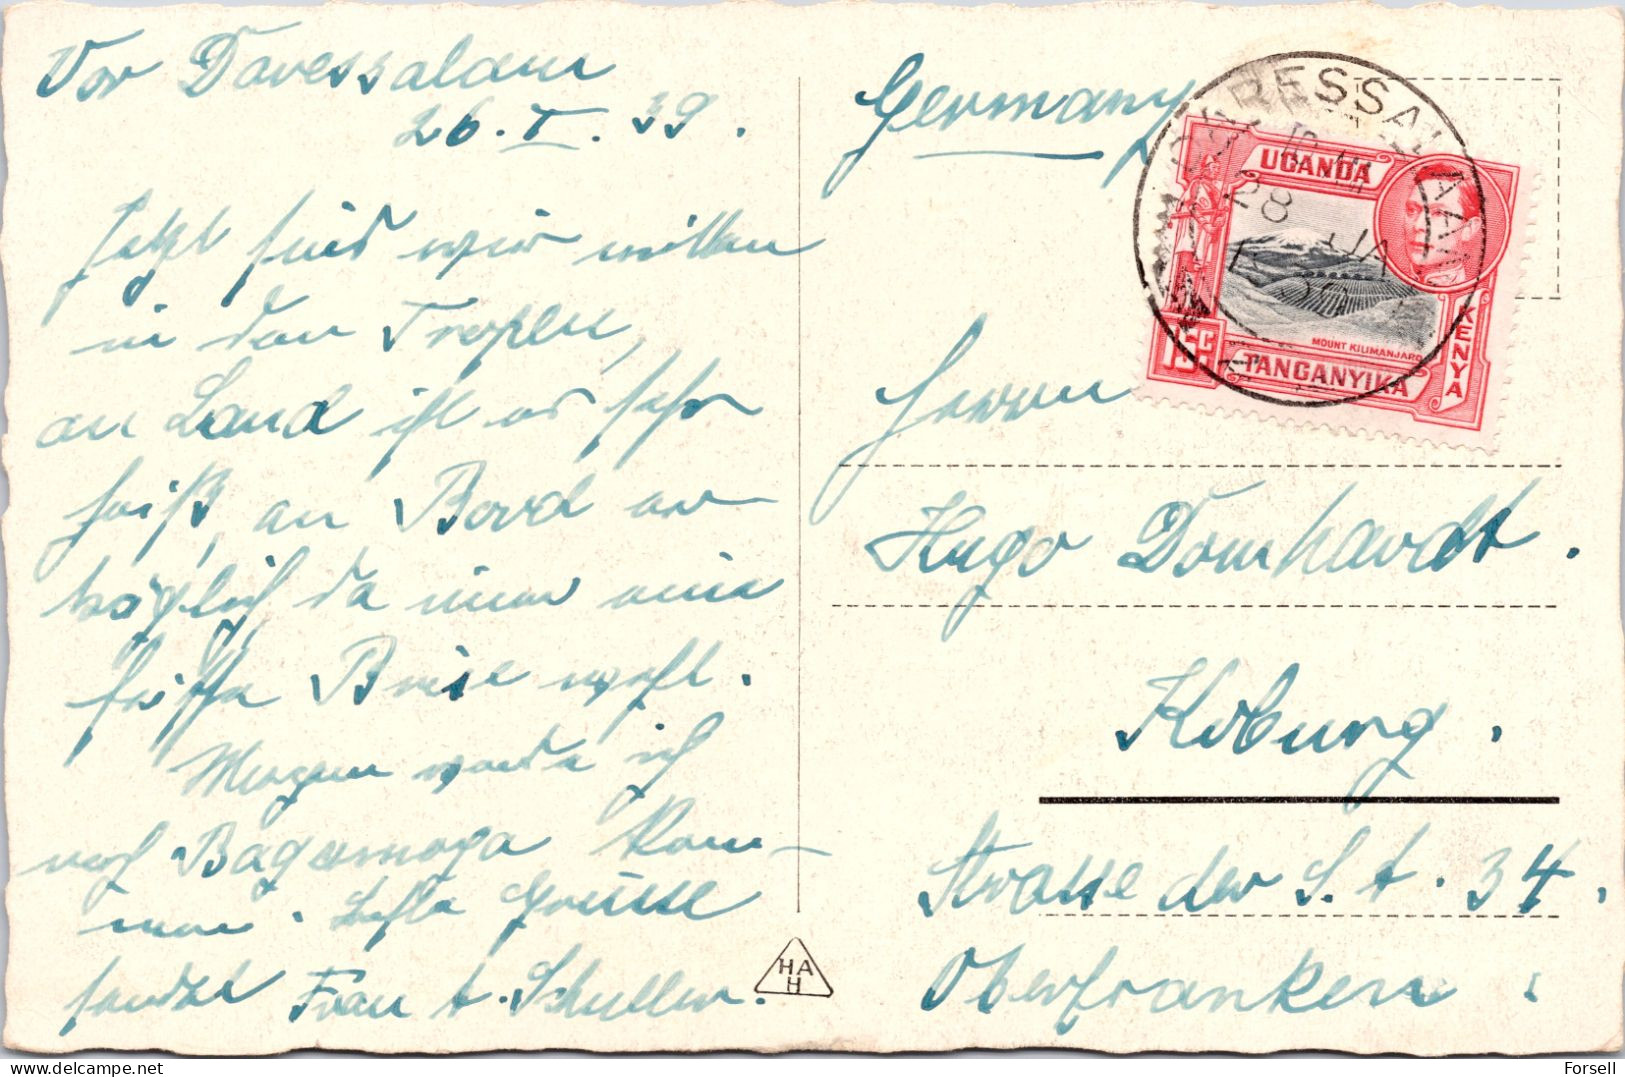 Vor Daressalam
26. I. 39.
Jetzt sind wir mitten
in den Tropen,
an Land ist es sehr
heiß, an Bord er-
träglich, da immer eine
frische Brise weht.
Morgen werde ich
nach Bagamoga kom-
men. Beste Grüsse
sendet Frau A. Schuller.
HA
H
Germany
DARESSALAAM
28 JA
UGANDA
KENYA
MOUNT KILIMANJARO
15c
TANGANYIKA
Herrn
Hugo Domhardt.
Koburg.
Strasse der S.A. 34.
Oberfranken.
Forsell